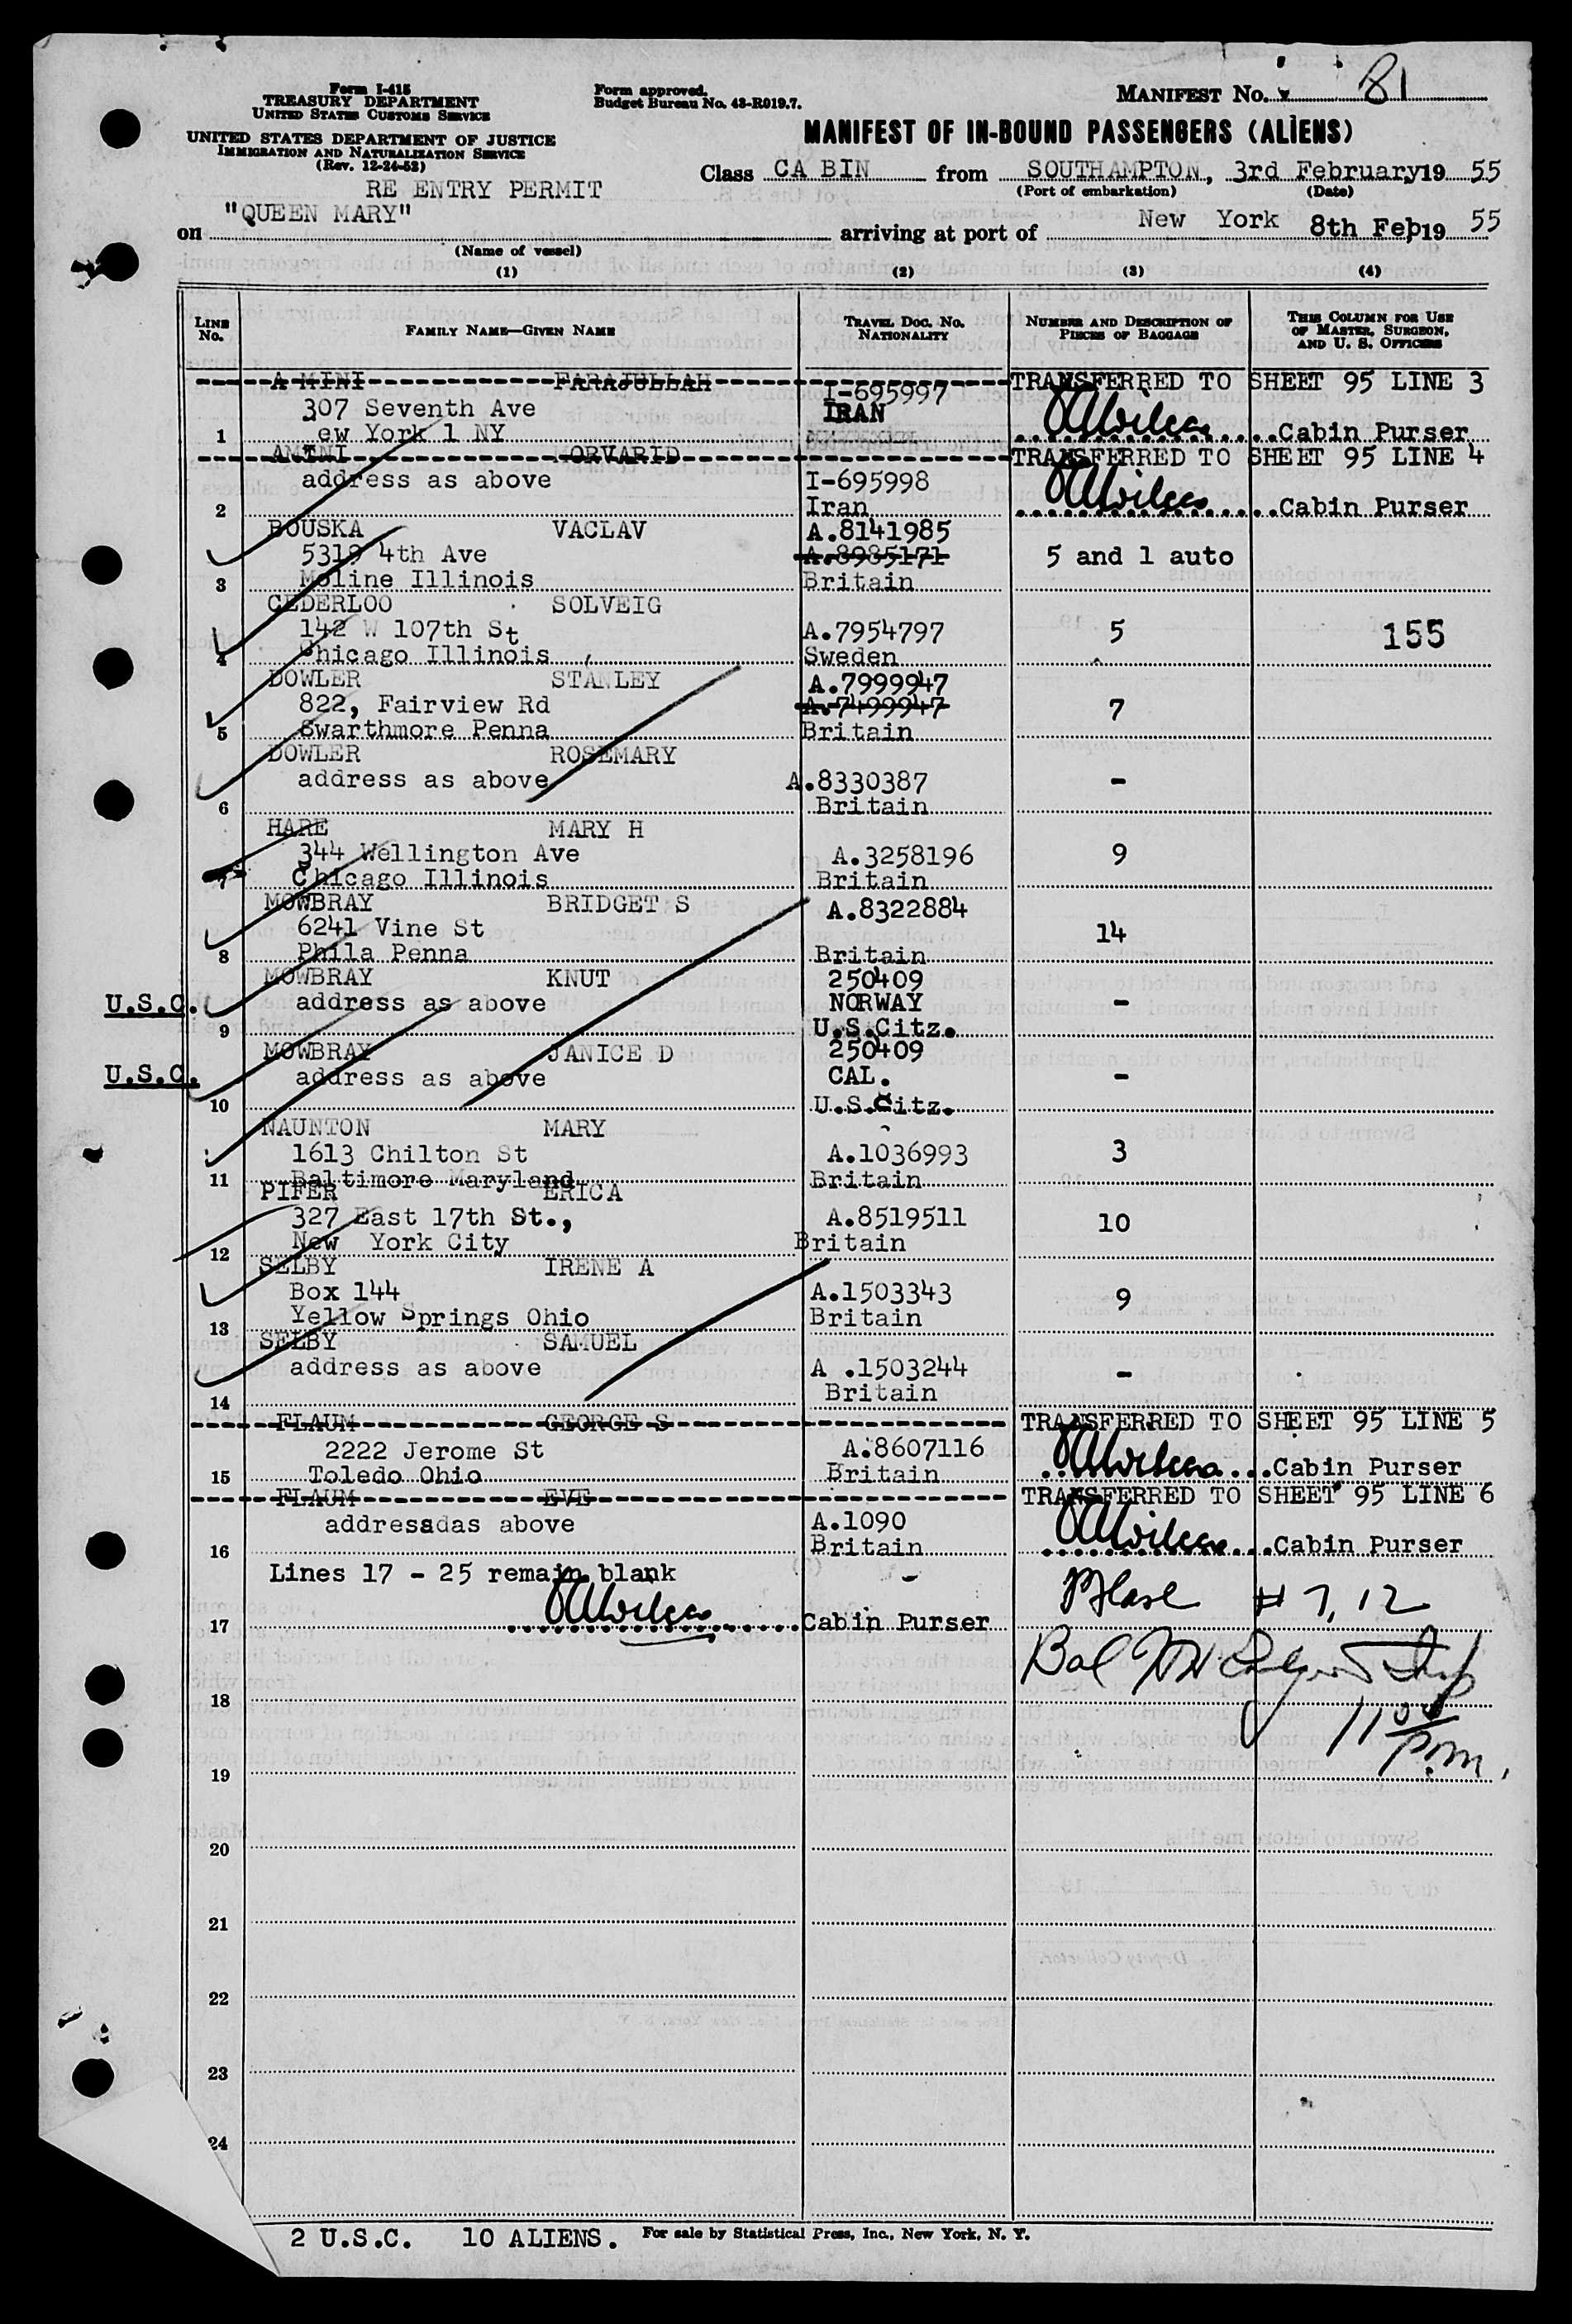 Form I-415
TREASURY DEPARTMENT
UNITED STATES CUSTOMS SERVICE
UNITED STATES DEPARTMENT OF JUSTICE
IMMIGRATION AND NATURALIZATION SERVICE
(Rev. 12-24-52)
Form approved.
Budget Bureau No. 43-R019.7.
MANIFEST No. 81
MANIFEST OF IN-BOUND PASSENGERS (ALIENS)
Class CA BIN from SOUTHAMPTON, 3rd February, 19 55
(Port of embarkation) (Date)
RE ENTRY PERMIT
on "QUEEN MARY" arriving at port of New York 8th Feb, 19 55
(Name of vessel)
(1) (2) (3) (4)
LINE No. FAMILY NAME—GIVEN NAME TRAVEL DOC. NO. NATIONALITY NUMBER AND DESCRIPTION OF PIECES OF BAGGAGE THIS COLUMN FOR USE OF MASTER, SURGEON, AND U. S. OFFICERS
A MINI FARAJULLAH TRANSFERRED TO SHEET 95 LINE 3
307 Seventh Ave I-695997 IRAN
1 ew York 1 NY Cabin Purser
AMINI ORVARID TRANSFERRED TO SHEET 95 LINE 4
address as above I-695998
2 Iran Cabin Purser
BOUSKA VACLAV A.8141985
5319 4th Ave A.8985171 5 and 1 auto
3 Moline Illinois Britain
CEDERLOO SOLVEIG
142 W 107th St A.7954797 5 155
4 Chicago Illinois Sweden
DOWLER STANLEY A.7999947
822, Fairview Rd A.7499947 7
5 Swarthmore Penna Britain
DOWLER ROSEMARY
address as above A.8330387 -
6 Britain
HARE MARY H
344 Wellington Ave A.3258196 9
7 Chicago Illinois Britain
MOWBRAY BRIDGET S A.8322884
6241 Vine St 14
8 Phila Penna Britain
MOWBRAY KNUT 250409
U.S.C. address as above NORWAY -
9 U.S.Citz.
MOWBRAY JANICE D 250409
U.S.C. address as above CAL. -
10 U.S.Citz.
NAUNTON MARY
1613 Chilton St A.1036993 3
11 Baltimore Maryland Britain
PIFER ERICA
327 East 17th St., A.8519511 10
12 New York City Britain
SELBY IRENE A
Box 144 A.1503343 9
13 Yellow Springs Ohio Britain
SELBY SAMUEL
address as above A .1503244 -
14 Britain
FLAUM GEORGE S TRANSFERRED TO SHEET 95 LINE 5
2222 Jerome St A.8607116
15 Toledo Ohio Britain Cabin Purser
FLAUM EVE TRANSFERRED TO SHEET 95 LINE 6
addressadas above A.1090
16 Britain Cabin Purser
Lines 17 - 25 remain blank -
17 Cabin Purser
# 7, 12
Bal
18
11 00 p.m.
19
20
21
22
23
24
2 U.S.C. 10 ALIENS. For sale by Statistical Press, Inc., New York, N. Y.